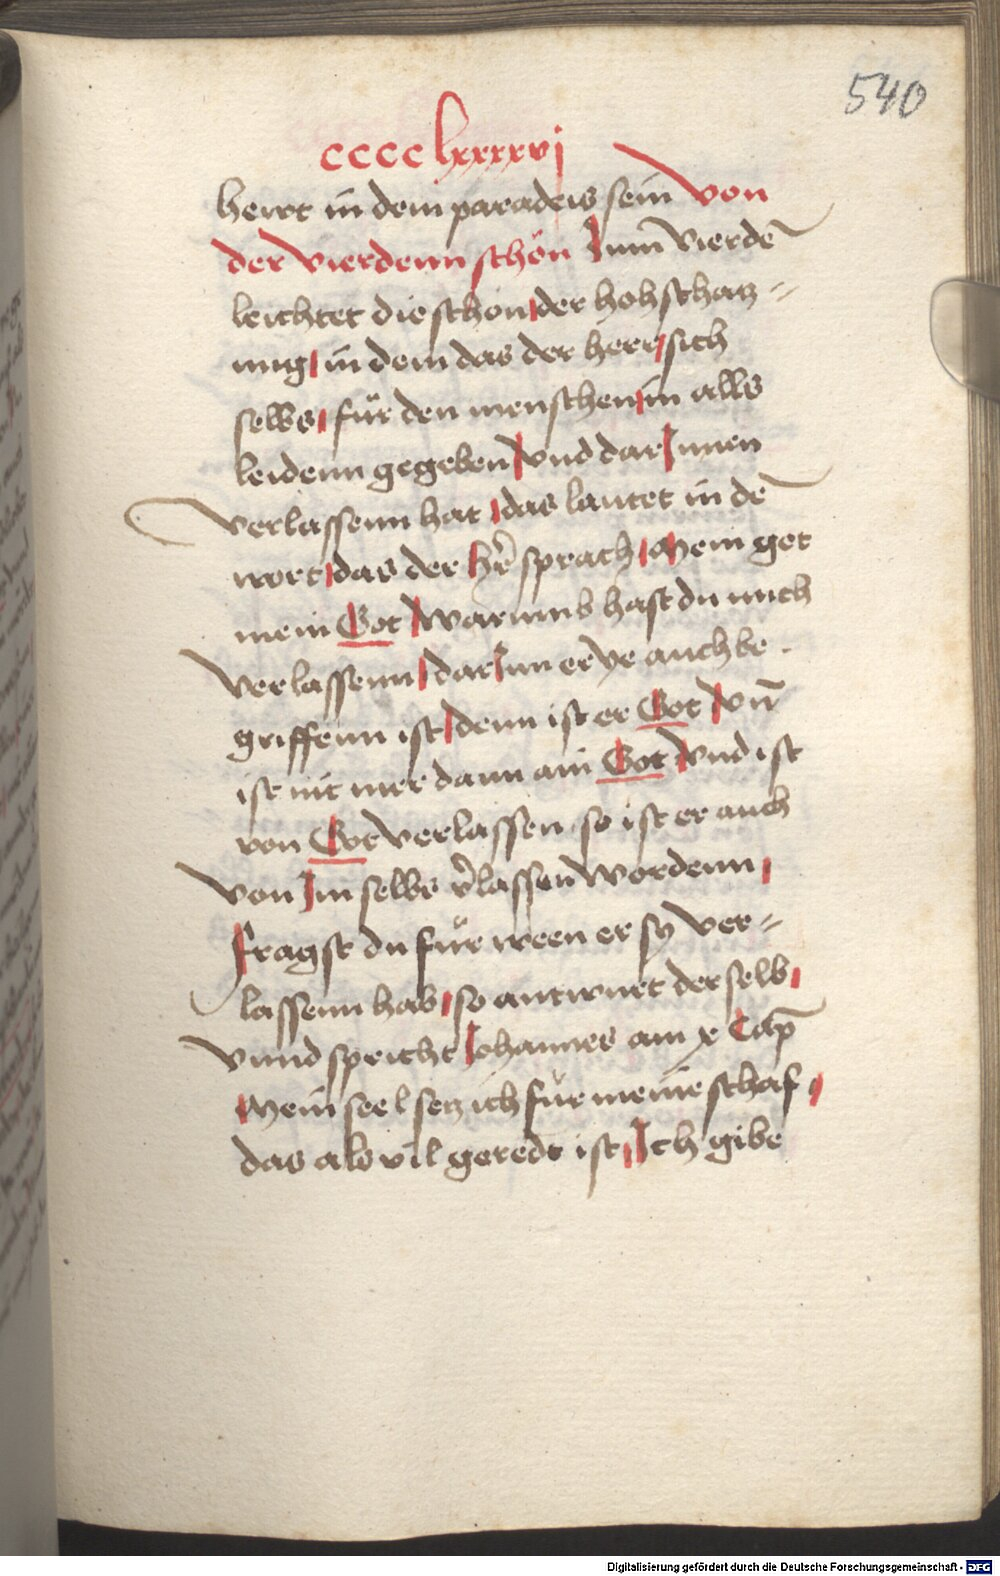 540
cccclxxxxvj
hewt in dem paradeis sein Von
der Vierdenn schön Zum Vierdē
leichtet die schon der hohschatz=
ung in dem das der herr sich
selbs für den menschen in alls
leidenn gegeben Vnd dar Jnnen
Verlassenn hat das lautet in dē
wort das der hr̄ sprach Mein got
mein Got Warumb hast du mich
Verlassenn dar Jnn er ye auch be-
griffenn ist denn ist er Got Vn̄
ist nit mer dann ain Got Vnd ist
von Got verlassen so ist er auch
von Jm selbs v̄lassen wordenn
Fragst du für ween er sy ver=
lassenn hab so antwurt der selb
Vnnd spricht Johannes am x Cap̄
Mein seel setz ich für meine schaf
das als vil geredt ist Jch gibe
Digitalisierung gefördert durch die Deutsche Forschungsgemeinschaft - DFG